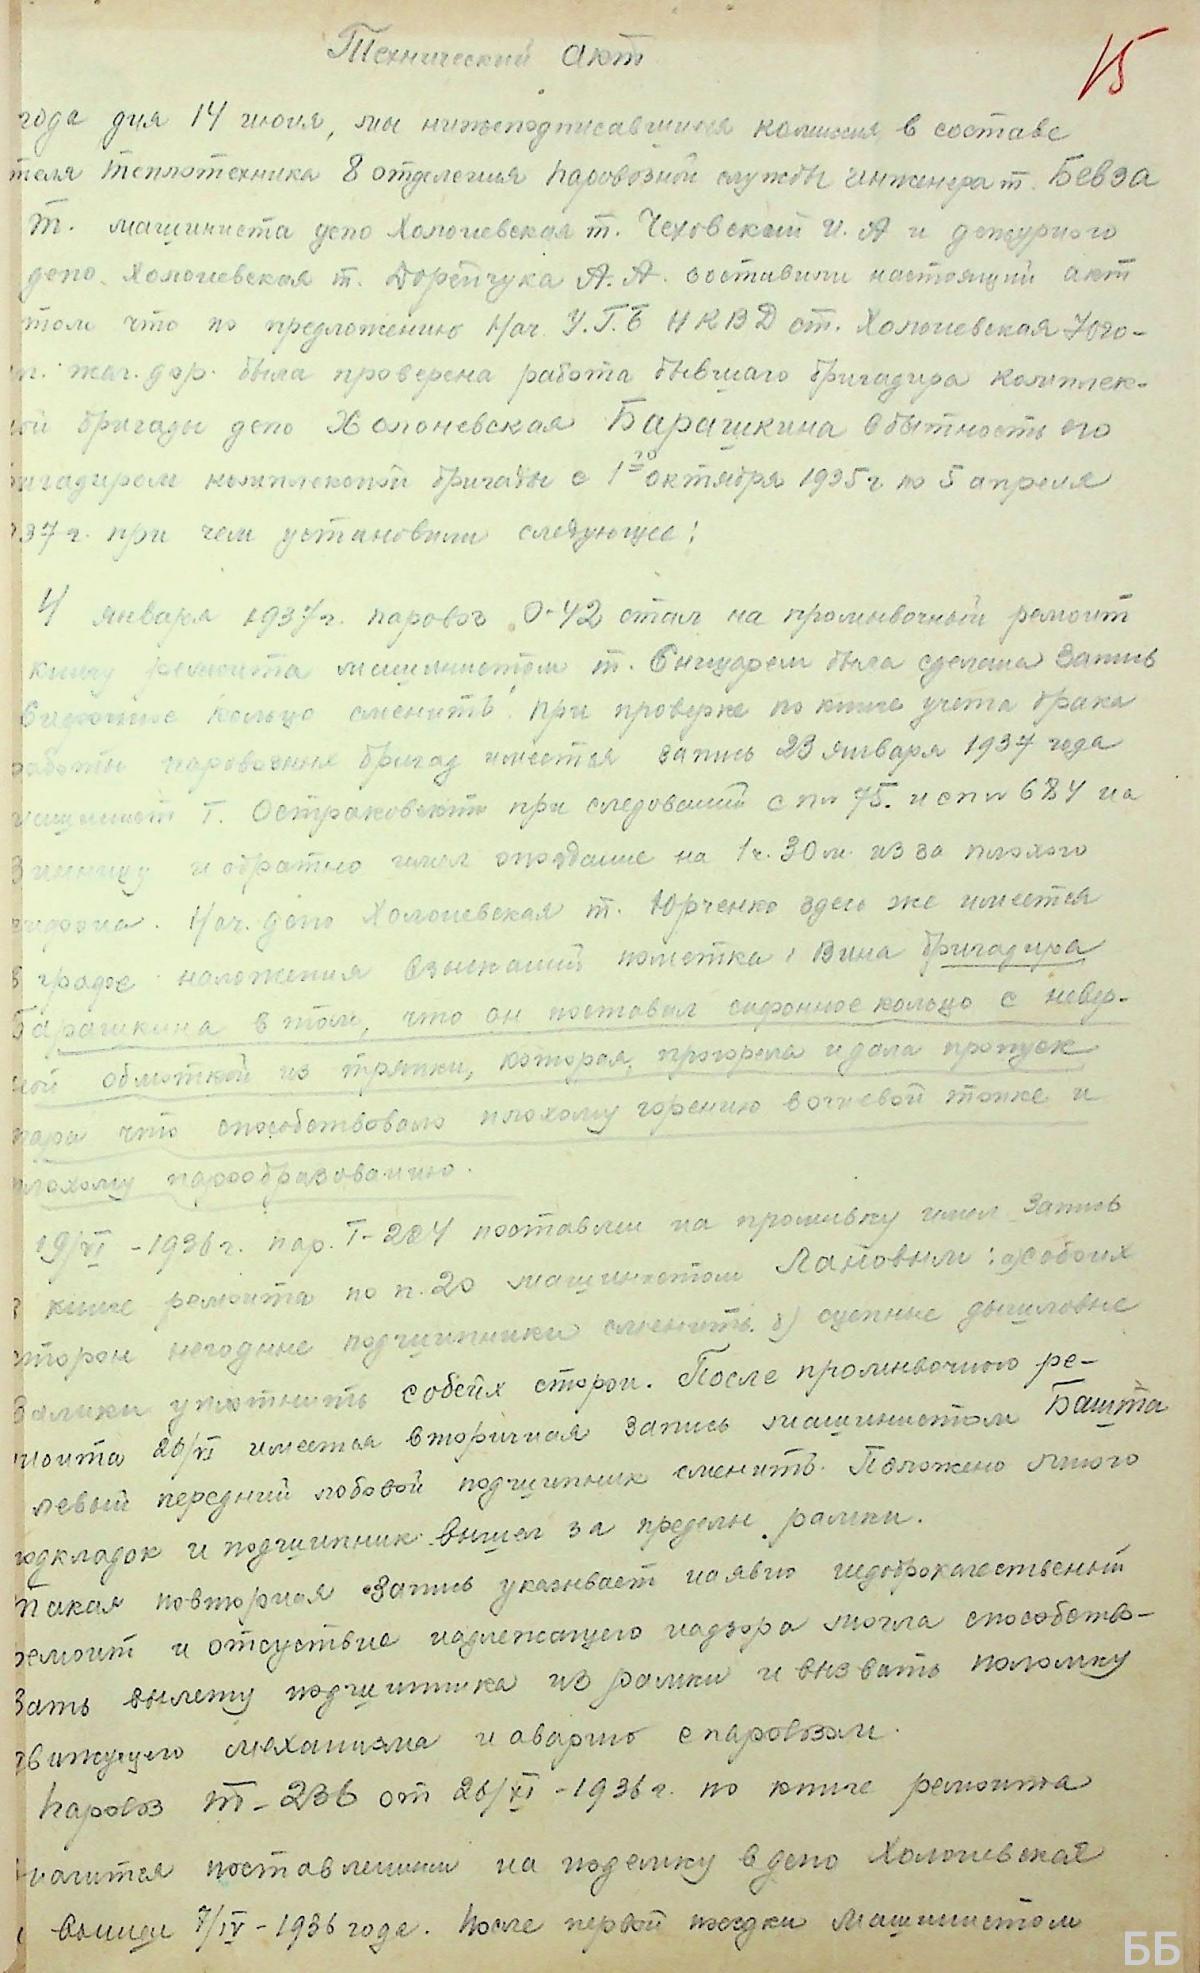 Технический акт
15
года дня 14 июня, мы нижеподписавшиеся комиссия в составе
теля теплотехника 8 отделения паровозной службы инженера т. Бевза
т. машиниста депо Холоневская т. Чеховский И. А и дежурного
депо Холоневская т. Дорепчука А. А. составили настоящий акт
том что по предложению Нач. У.Г.Б НКВД ст. Холоневская Юго-
жел. дор. была проверена работа бывшаго бригадира комплек-
ной бригады депо Холоневская Барашкина в бытность его
бригадиром комплексной бригады с 1го октября 1935 г по 5 апреля
37 г. при чем установили следующее:
4 января 1937 г. паровоз О-42 стал на промывочный ремонт
книгу ремонта машинистом т. была сделана запись
сифонное кольцо сменить". При проверке по книге учета брака
работы паровозных бригад имеется запись 23 января 1937 года
машинист т. при следовании с п№ 75. и с п№ 684 на
и обратно имел опоздание на 1ч. 30 м. из за плохого
сифона. Нач. депо Холоневская т. Юрченко здесь же имеется
в графе наложения взысканий пометка: Вина бригадира
Барашкина в том, что он поставил сифонное кольцо с невер-
ной обмоткой из тряпки, которая, прогорела и дала пропуск
пара что способствовало плохому горению в огневой топке и
плохому парообразованию.
19/VI - 1936 г. пар. Т-224 поставлен на промывку имел запись
в книге ремонта по п. 20 машинистом Лановым: а) с обоих
сторон негодные подшипники сменить. б) сцепные дышловые
валики уплотнить с обеих сторон. После промывочного ре-
монта 26/VI имеется вторичная запись машинистом Башта
левый передний лобовой подшипник сменить. Положено много
подкладок и подшипник вышел за пределы рамки.
Такая повторная запись указывает на явно недоброкачественный
ремонт и отсуствие надлежащего надзора могла способство-
вать вылету подшипника из рамки и вызвать поломку
движущего механизма и аварию с паровозом.
Паровоз Т-236 от 26/VI - 1936 г. по книге ремонта
значится поставленным на поделку в депо Холоневская
вышел 7/IV - 1936 года. После первой поездки машинистом
ББ